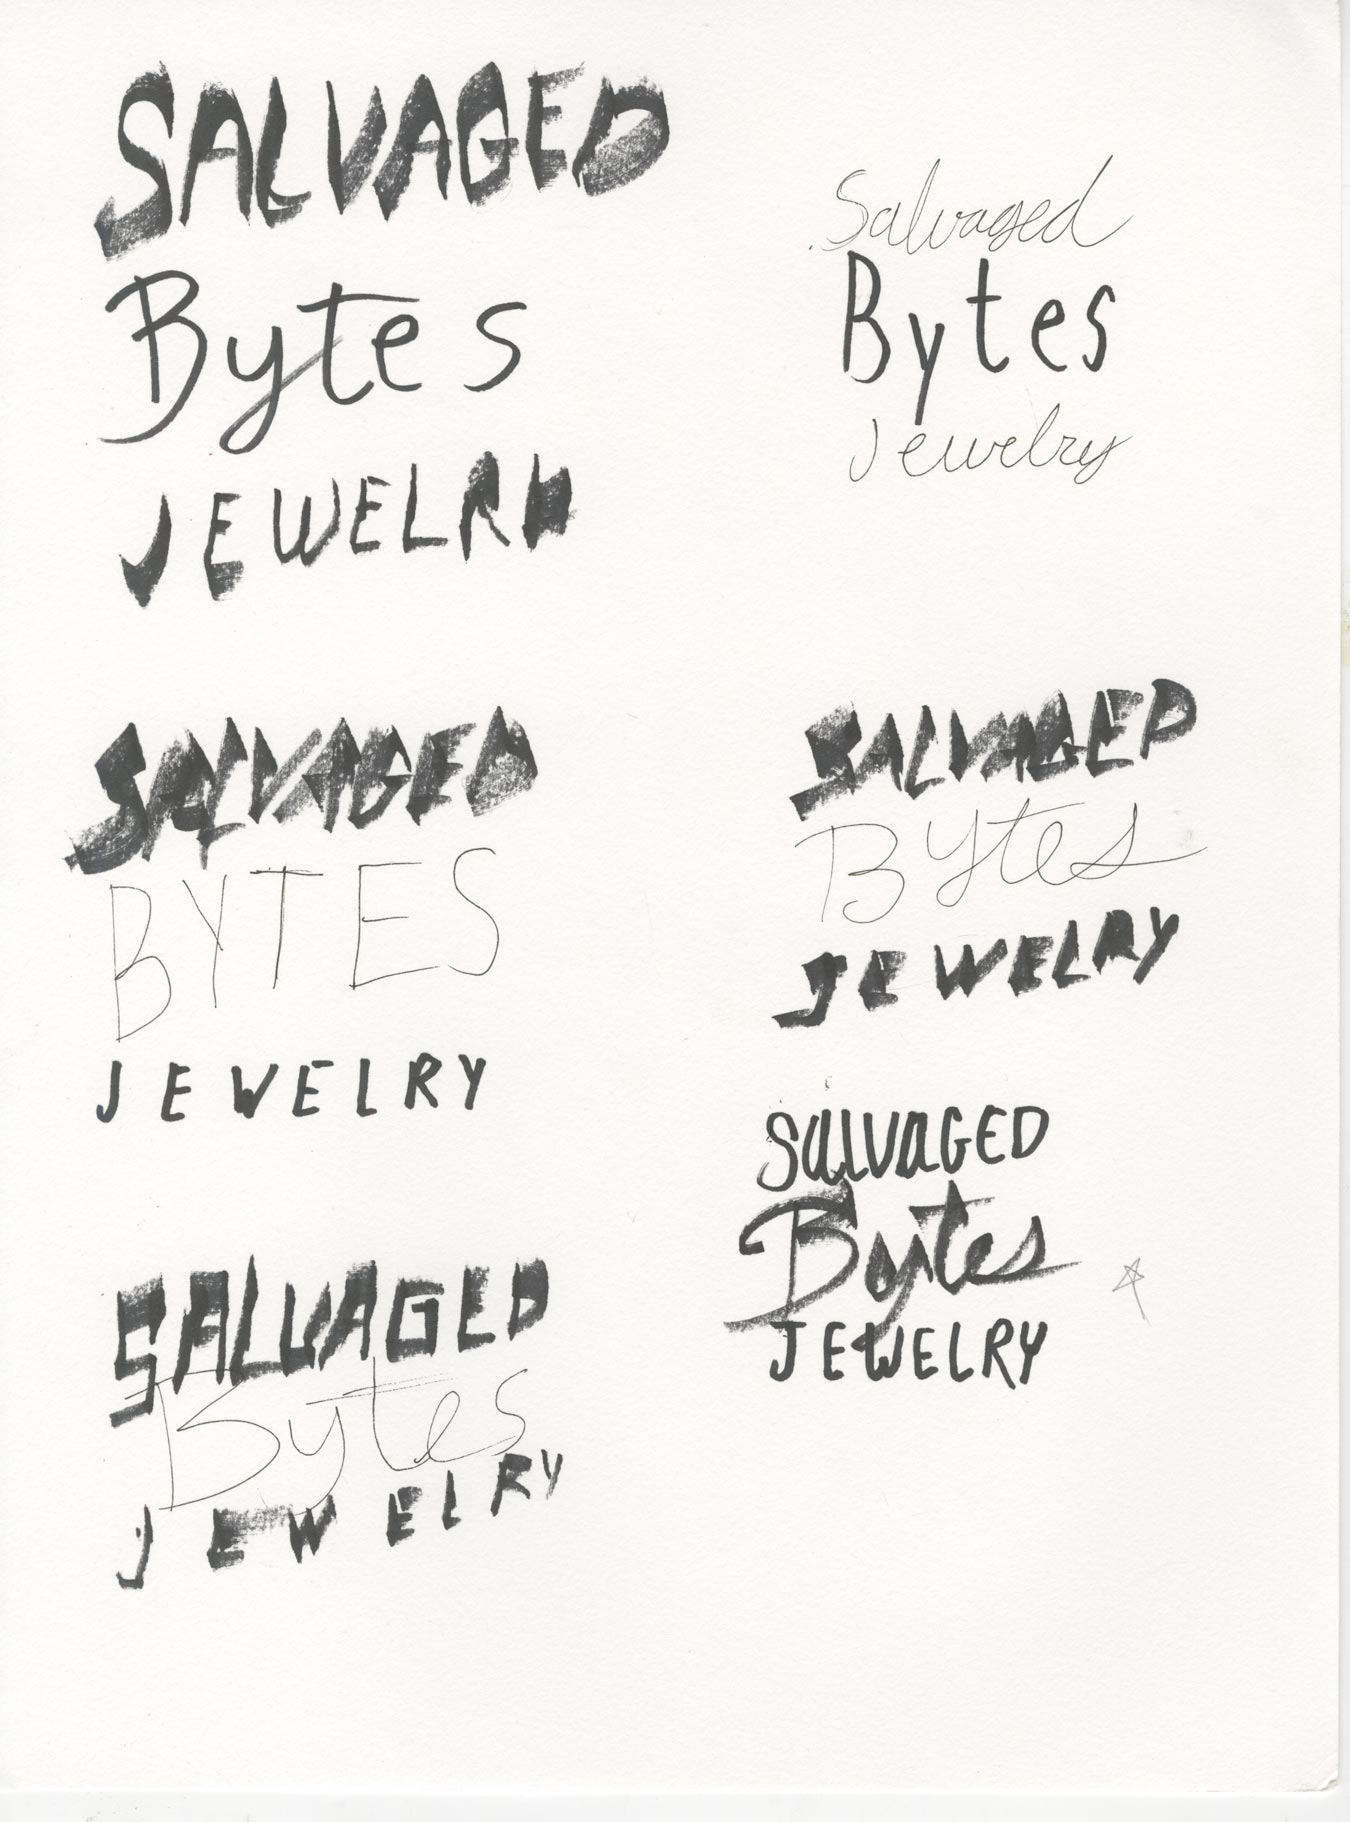 SALVAGED
Bytes
JEWELRY
Salvaged
Bytes
Jewelry
SALVAGED
BYTES
JEWELRY
SALVAGED
Bytes
JEWELRY
SALVAGED
Bytes
JEWELRY
SALVAGED
Bytes
JEWELRY